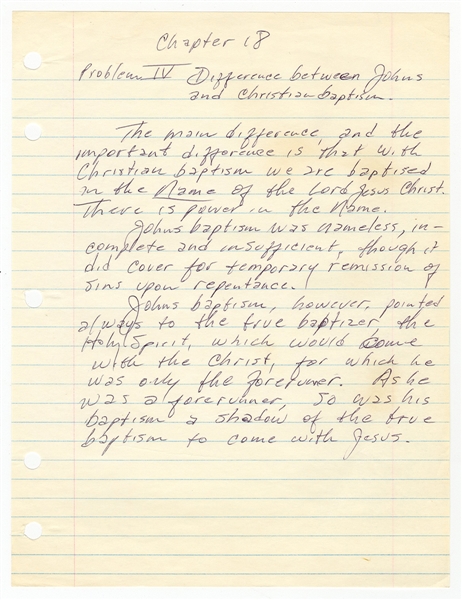 Chapter 18
Problem IV Difference between Johns
and Christian baptism.
The main difference, and the
important difference is that with
Christian baptism we are baptised
in the Name of the Lord Jesus Christ.
There is power in the Name.
Johns baptism was nameless, in-
complete and insufficient, though it
did cover for temporary remission of
sins upon repentance.
Johns baptism, however, pointed
always to the true baptizer, the
Holy Spirit, which would come
with the Christ, for which he
was only the forerunner. As he
was a forerunner, so was his
baptism a shadow of the true
baptism to come with Jesus.